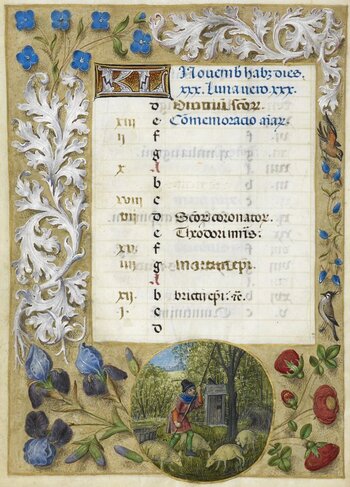 KL Novemb habz dies
xxx. Luna vero xxx.
d Omniū scor.
xiii e Cōmemoracio aīar.
ii f
g
x A
b
xviii c
vii d Scor coronator.
e Theodori mris:
xv. f
iiii g martini epi.
A
xii. b bricii epi:
i. c
d